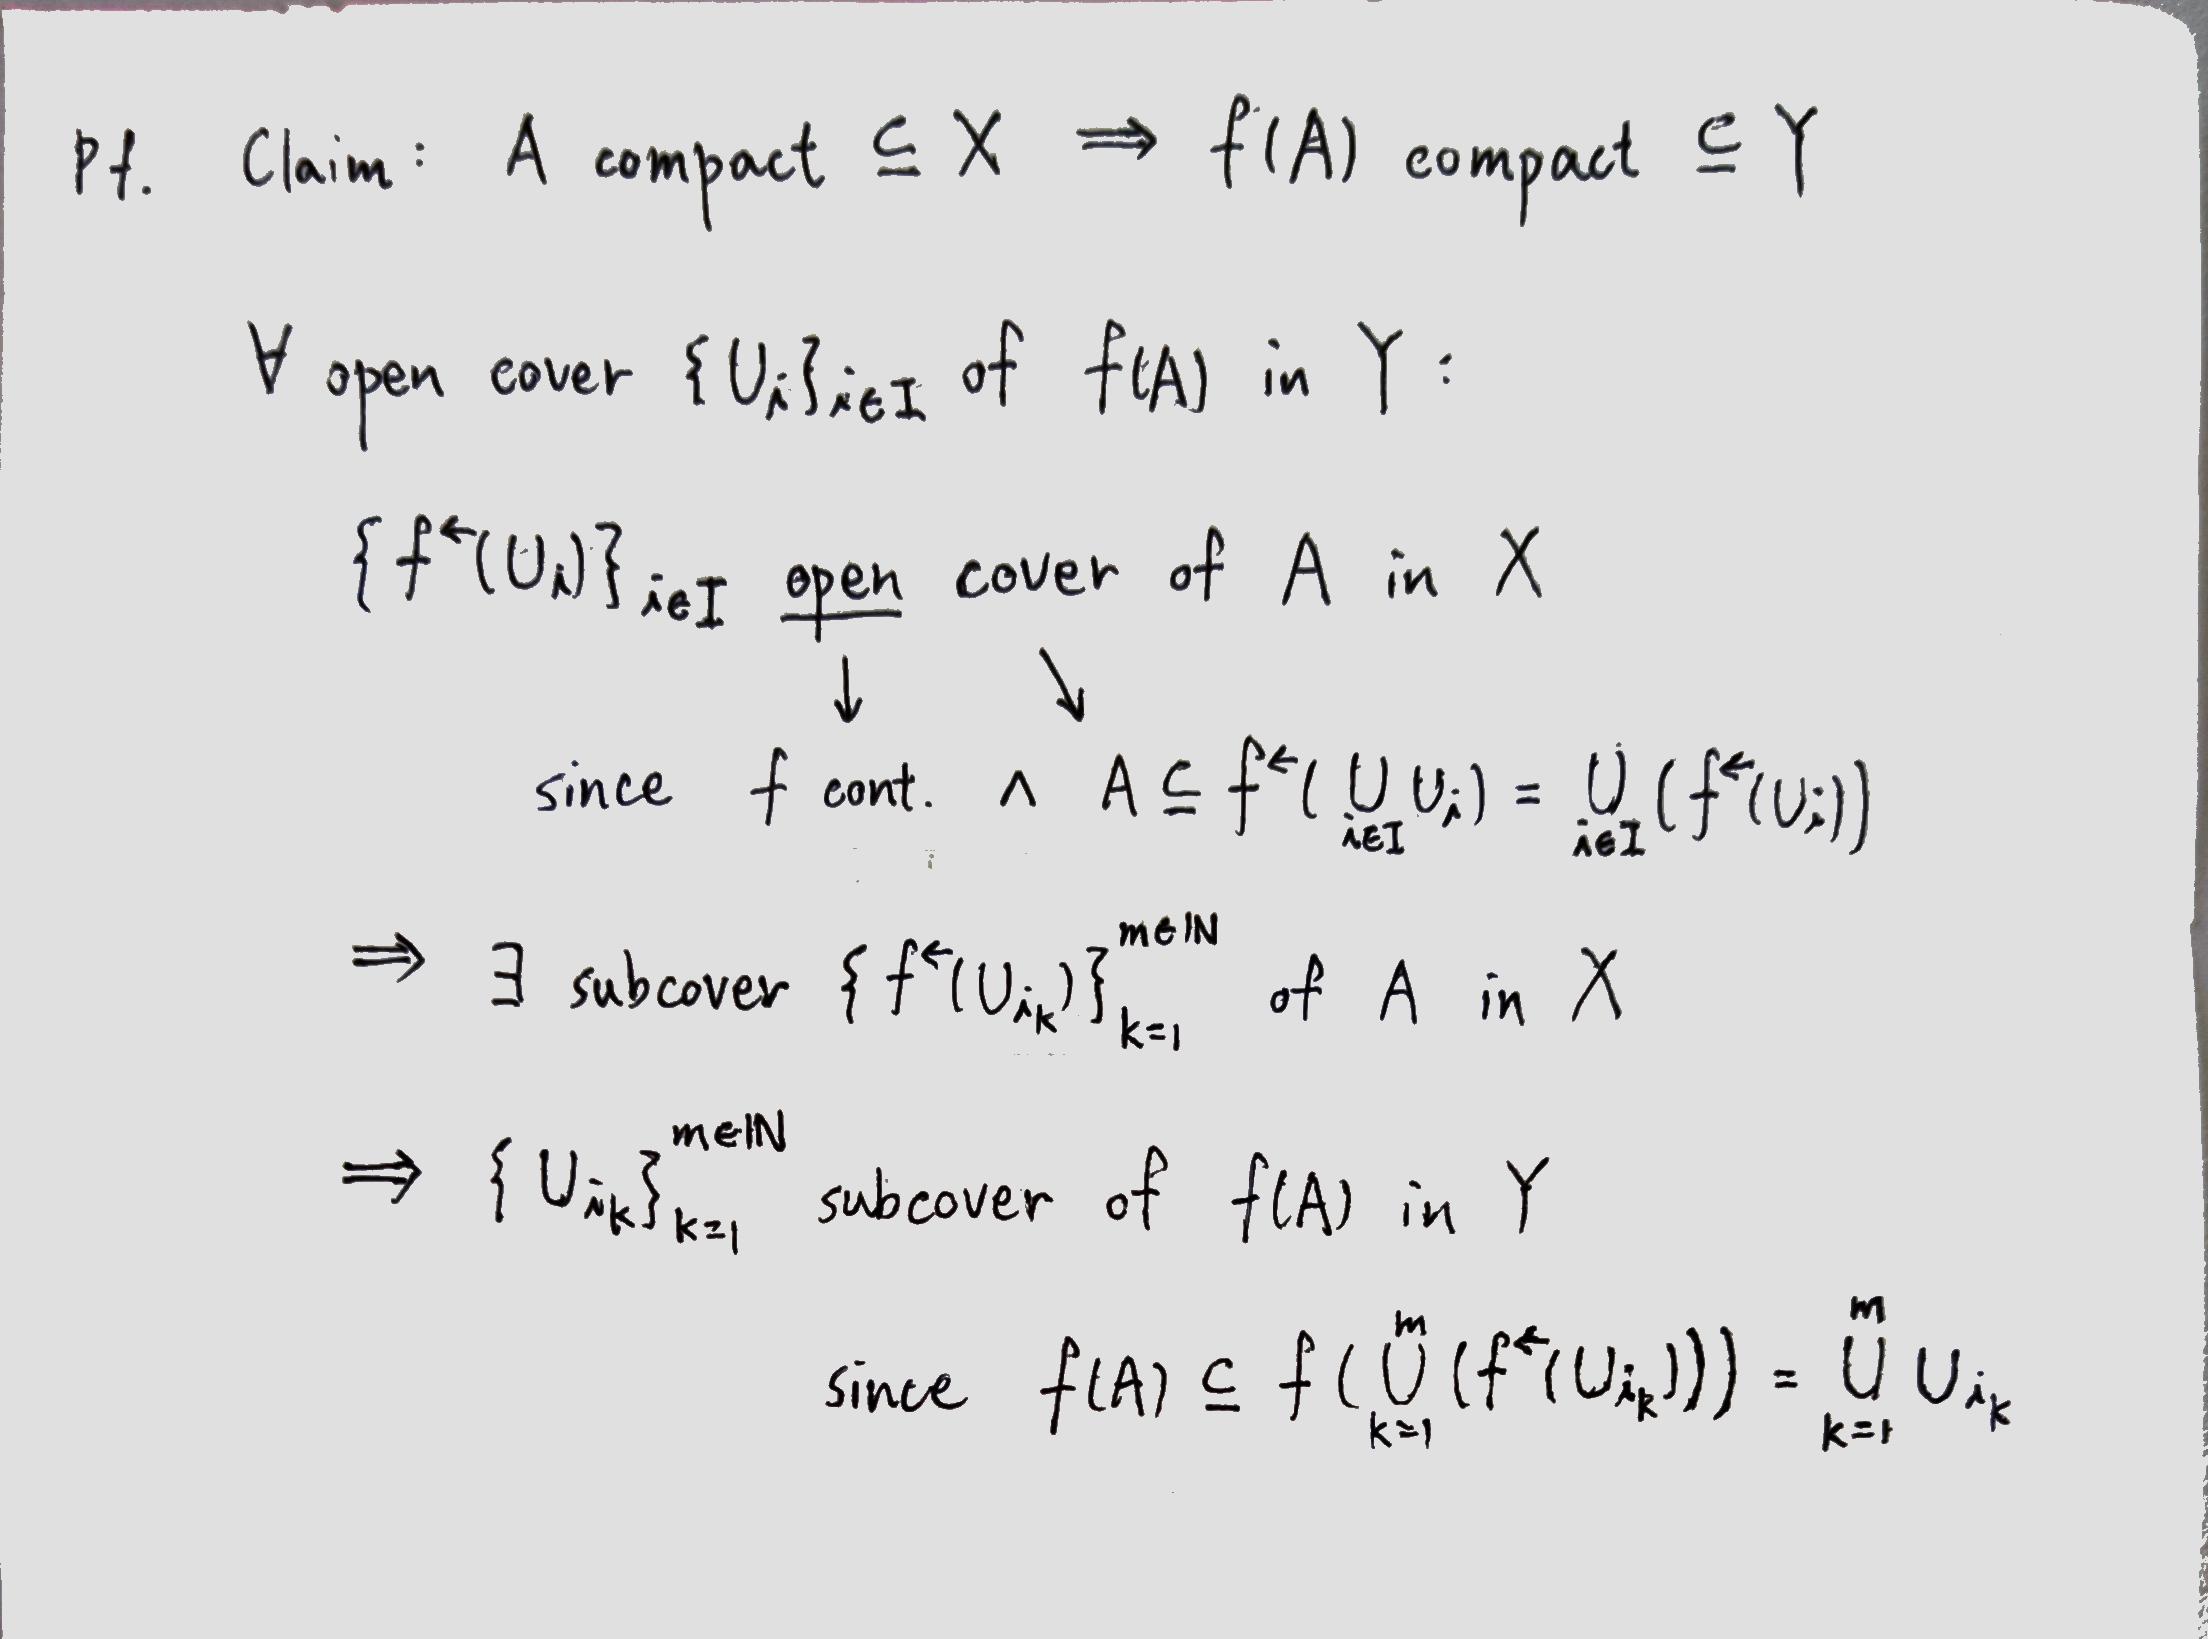 Pf. Claim: A compact ⊆ X ⇒ f(A) compact ⊆ Y
∀ open cover {U_i}_{i∈I} of f(A) in Y :
{f^←(U_i)}_{i∈I} open cover of A in X
↓ ↘
since f cont. ∧ A ⊆ f^←(⋃_{i∈I} U_i) = ⋃_{i∈I} (f^←(U_i))
⇒ ∃ subcover {f^←(U_{i_k})}_{k=1}^{m∈ℕ} of A in X
⇒ {U_{i_k}}_{k=1}^{m∈ℕ} subcover of f(A) in Y
since f(A) ⊆ f(⋃_{k=1}^{m} (f^←(U_{i_k}))) = ⋃_{k=1}^{m} U_{i_k}